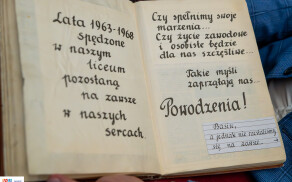 Lata 1963-1968
spędzone
w naszym
liceum
pozostaną
na zawsze
w naszych
sercach
Czy spełnimy swoje
marzenia...
Czy życie zawodowe
i osobiste będzie
dla nas szczęśliwe...
Takie myśli
zaprzątają nas...
Powodzenia!
Basiu,
a jednak nie
się na zawsze...